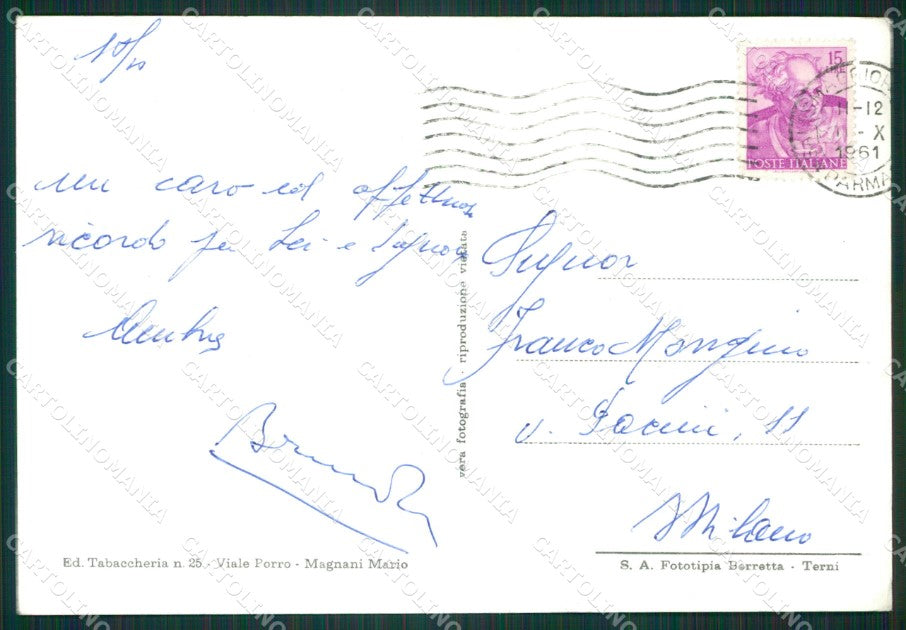 un caro ed affettuoso
ricordo per Lei e Signora
Signor
Franco Mangino
v. Pacini, 11
Milano
vera fotografia riproduzione vietata
Ed. Tabaccheria n. 25 - Viale Porro - Magnani Mario
S. A. Fototipia Berretta - Terni
15
POSTE ITALIANE
11-12
X
1961
PARMA
CARTOLINOMANIA